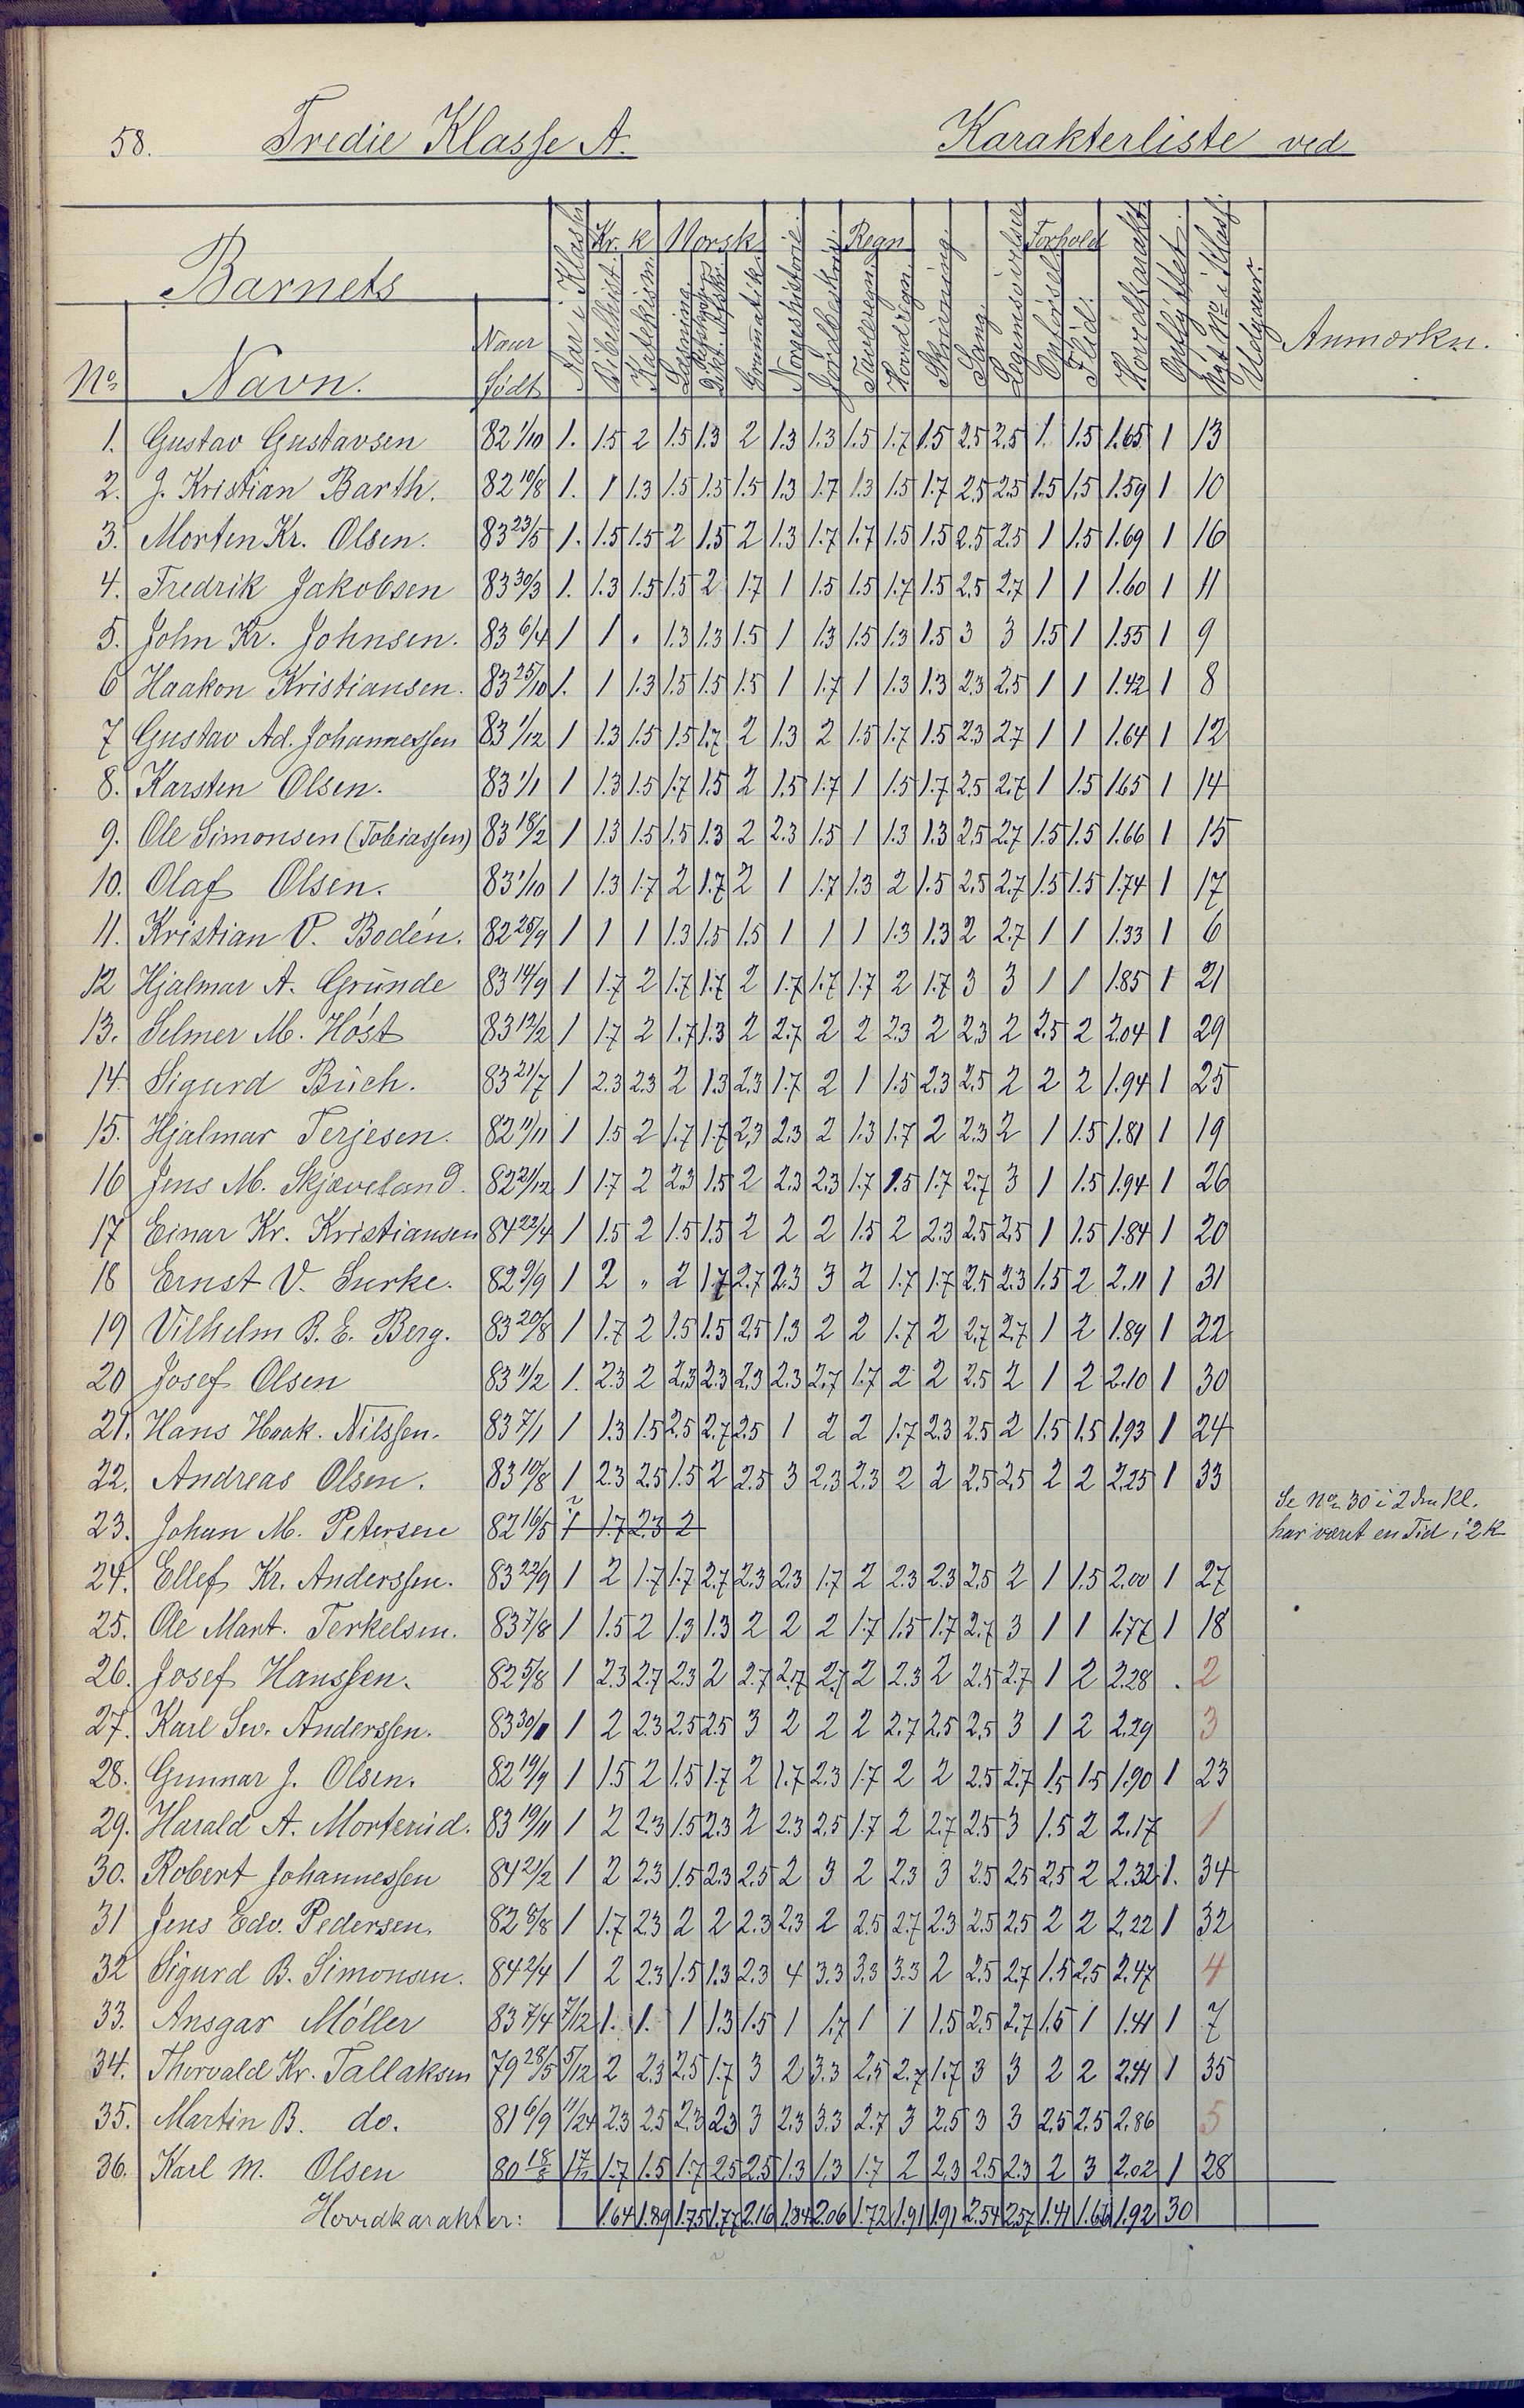 58. Tredie Klasse A. Karakterliste ved
Barnets Kr. k Norsk Regn Forhold
No Navn. Naar Født Aar i Klasse Bibelhist. Katekisme Læsning Grammatik. Norgeshistorie Jordbeskriv. Tavleregn. Hovedregn. Skrivning. Sang. Legemsøvelser Opførsel Flid. Hovedkarakt. Opflyttet. Nyt No i Klas. Udgaar. Anmærkn.
1. Gustav Gustavsen 82 1/10 1. 1.5 2 1.5 1.3 2 1.3 1.3 1.5 1.7 1.5 2.5 2.5 1. 1.5 1.65 1 13
2. J. Kristian Barth. 82 19/8 1. 1 1.3 1.5 1.5 1.5 1.3 1.7 1.3 1.5 1.7 2.5 2.5 1.5 1.5 1.59 1 10
3. Morten Kr. Olsen. 83 23/5 1. 1.5 1.5 2 1.5 2 1.3 1.7 1.7 1.5 1.5 2.5 2.5 1 1.5 1.69 1 16
4. Fredrik Jakobsen 83 30/3 1. 1.3 1.5 1.5 2 1.7 1 1.5 1.5 1.7 1.5 2.5 2.7 1 1 1.60 1 11
5. John Kr. Johnsen. 83 6/4 1 1 . 1.3 1.3 1.5 1 1.3 1.5 1.3 1.5 3 3 1.5 1 1.55 1 9
6 Haakon Kristiansen. 83 25/10 1. 1 1.3 1.5 1.5 1.5 1 1.7 1 1.3 1.3 2.3 2.5 1 1 1.42 1 8
7 Gustav Ad. Johannessen 83 1/12 1 1.3 1.5 1.5 1.7 2 1.3 2 1.5 1.7 1.5 2.3 2.7 1 1 1.64 1 12
8. Karsten Olsen. 83 1/1 1 1.3 1.5 1.7 1.5 2 1.5 1.7 1 1.5 1.7 2.5 2.7 1 1.5 1.65 1 14
9. Ole Simonsen (Tobiassen) 83 18/2 1 1.3 1.5 1.5 1.3 2 2.3 1.5 1 1.3 1.3 2.5 2.7 1.5 1.5 1.66 1 15
10. Olaf Olsen. 83 1/10 1 1.3 1.7 2 1.7 2 1 1.7 1.3 2 1.5 2.5 2.7 1.5 1.5 1.74 1 17
11. Kristian P. Bodén. 82 25/9 1 1 1 1.3 1.5 1.5 1 1 1 1.3 1.3 2 2.7 1 1 1.33 1 6
12 Hjalmar A. Grunde 83 14/9 1 1.7 2 1.7 1.7 2 1.7 1.7 1.7 2 1.7 3 3 1 1 1.85 1 21
13. Selmer M. Höst 83 12/2 1 1.7 2 1.7 1.3 2 2.7 2 2 2.3 2 2.3 2 2.5 2 2.04 1 29
14. Sigurd Buch. 83 21/7 1 2.3 2.3 2 1.3 2.3 1.7 2 1 1.5 2.3 2.5 2 2 2 1.94 1 25
15. Hjalmar Terjesen. 82 11/11 1 1.5 2 1.7 1.7 2.3 2.3 2 1.3 1.7 2 2.3 2 1 1.5 1.81 1 19
16 Jens M. Skjæveland. 82 21/12 1 1.7 2 2.3 1.5 2 2.3 2.3 1.7 1.5 1.7 2.7 3 1 1.5 1.94 1 26
17 Einar Kr. Kristiansen 84 22/4 1 1.5 2 1.5 1.5 2 2 2 1.5 2 2.3 2.5 2.5 1 1.5 1.84 1 20
18 Ernst V. Surke. 82 9/9 1 2 " 2 1.7 2.7 2.3 3 2 1.7 1.7 2.5 2.3 1.5 2 2.11 1 31
19 Vilhelm B. E. Berg. 83 20/8 1 1.7 2 1.5 1.5 2.5 1.3 2 2 1.7 2 2.7 2.7 1 2 1.89 1 22
20 Josef Olsen 83 11/2 1. 2.3 2 2.3 2.3 2.3 2.3 2.7 1.7 2 2 2.5 2 1 2 2.10 1 30
21. Hans Haak. Nilssen. 83 7/1 1 1.3 1.5 2.5 2.7 2.5 1 2 2 1.7 2.3 2.5 2 1.5 1.5 1.93 1 24
22. Andreas Olsen. 83 19/8 1 2.3 2.5 1.5 2 2.5 3 2.3 2.3 2 2 2.5 2.5 2 2 2.25 1 33
Se No 30 i 2den Kl.
23. Johan M. Petersen 82 16/5 1 1.7 2.3 2 har været en Tid i 2 K
24. Ellef Kr. Anderssen. 83 22/9 1 2 1.7 1.7 2.7 2.3 2.3 1.7 2 2.3 2.3 2.5 2 1 1.5 2.00 1 27
25. Ole Mart. Terkelsen. 83 7/8 1 1.5 2 1.3 1.3 2 2 2 1.7 1.5 1.7 2.7 3 1 1 1.77 1 18
26. Josef Hanssen. 82 5/8 1 2.3 2.7 2.3 2 2.7 2.7 2.7 2 2.3 2 2.5 2.7 1 2 2.28 . 2
27. Karl Sev. Anderssen. 83 30/11 1 2 2.3 2.5 2.5 3 2 2 2 2.7 2.5 2.5 3 1 2 2.29 3
28. Gunnar J. Olsen. 82 19/9 1 1.5 2 1.5 1.7 2 1.7 2.3 1.7 2 2 2.5 2.7 1.5 1.5 1.90 1 23
29. Harald A. Morterud. 83 19/11 1 2 2.3 1.5 2.3 2 2.3 2.5 1.7 2 2.7 2.5 3 1.5 2 2.17 1
30. Robert Johannessen 84 21/2 1 2 2.3 1.5 2.3 2.5 2 3 2 2.3 3 2.5 2.5 2.5 2 2.32 1. 34
31 Jens Edv. Pedersen. 82 8/8 1 1.7 2.3 2 2 2.3 2.3 2 2.5 2.7 2.3 2.5 2.5 2 2 2.22 1 32
32 Sigurd B. Simonsen. 84 2/4 1 2 2.3 1.5 1.3 2.3 4 3.3 3.3 3.3 2 2.5 2.7 1.5 2.5 2.47 4
33. Ansgar Möller 83 7/4 7/12 1. 1. 1 1.3 1.5 1 1.7 1 1 1.5 2.5 2.7 1.5 1 1.41 1 7
34. Thorvald Kr. Tallaksen 79 28/5 5/12 2 2.3 2.5 1.7 3 2 3.3 2.5 2.7 1.7 3 3 2 2 2.41 1 35
35. Martin B. do. 81 6/9 11/24 2.3 2.5 2.3 2.3 3 2.3 3.3 2.7 3 2.5 3 3 2.5 2.5 2.86 5
36. Karl M. Olsen 80 1.7 1.5 1.7 2.5 2.5 1.3 1.3 1.7 2 2.3 2.5 2.3 2 3 2.02 1 28
Hovedkarakter: 1.64 1.89 1.75 1.77 2.16 1.84 2.06 1.72 1.91 1.91 2.54 2.57 1.41 1.66 1.92 30